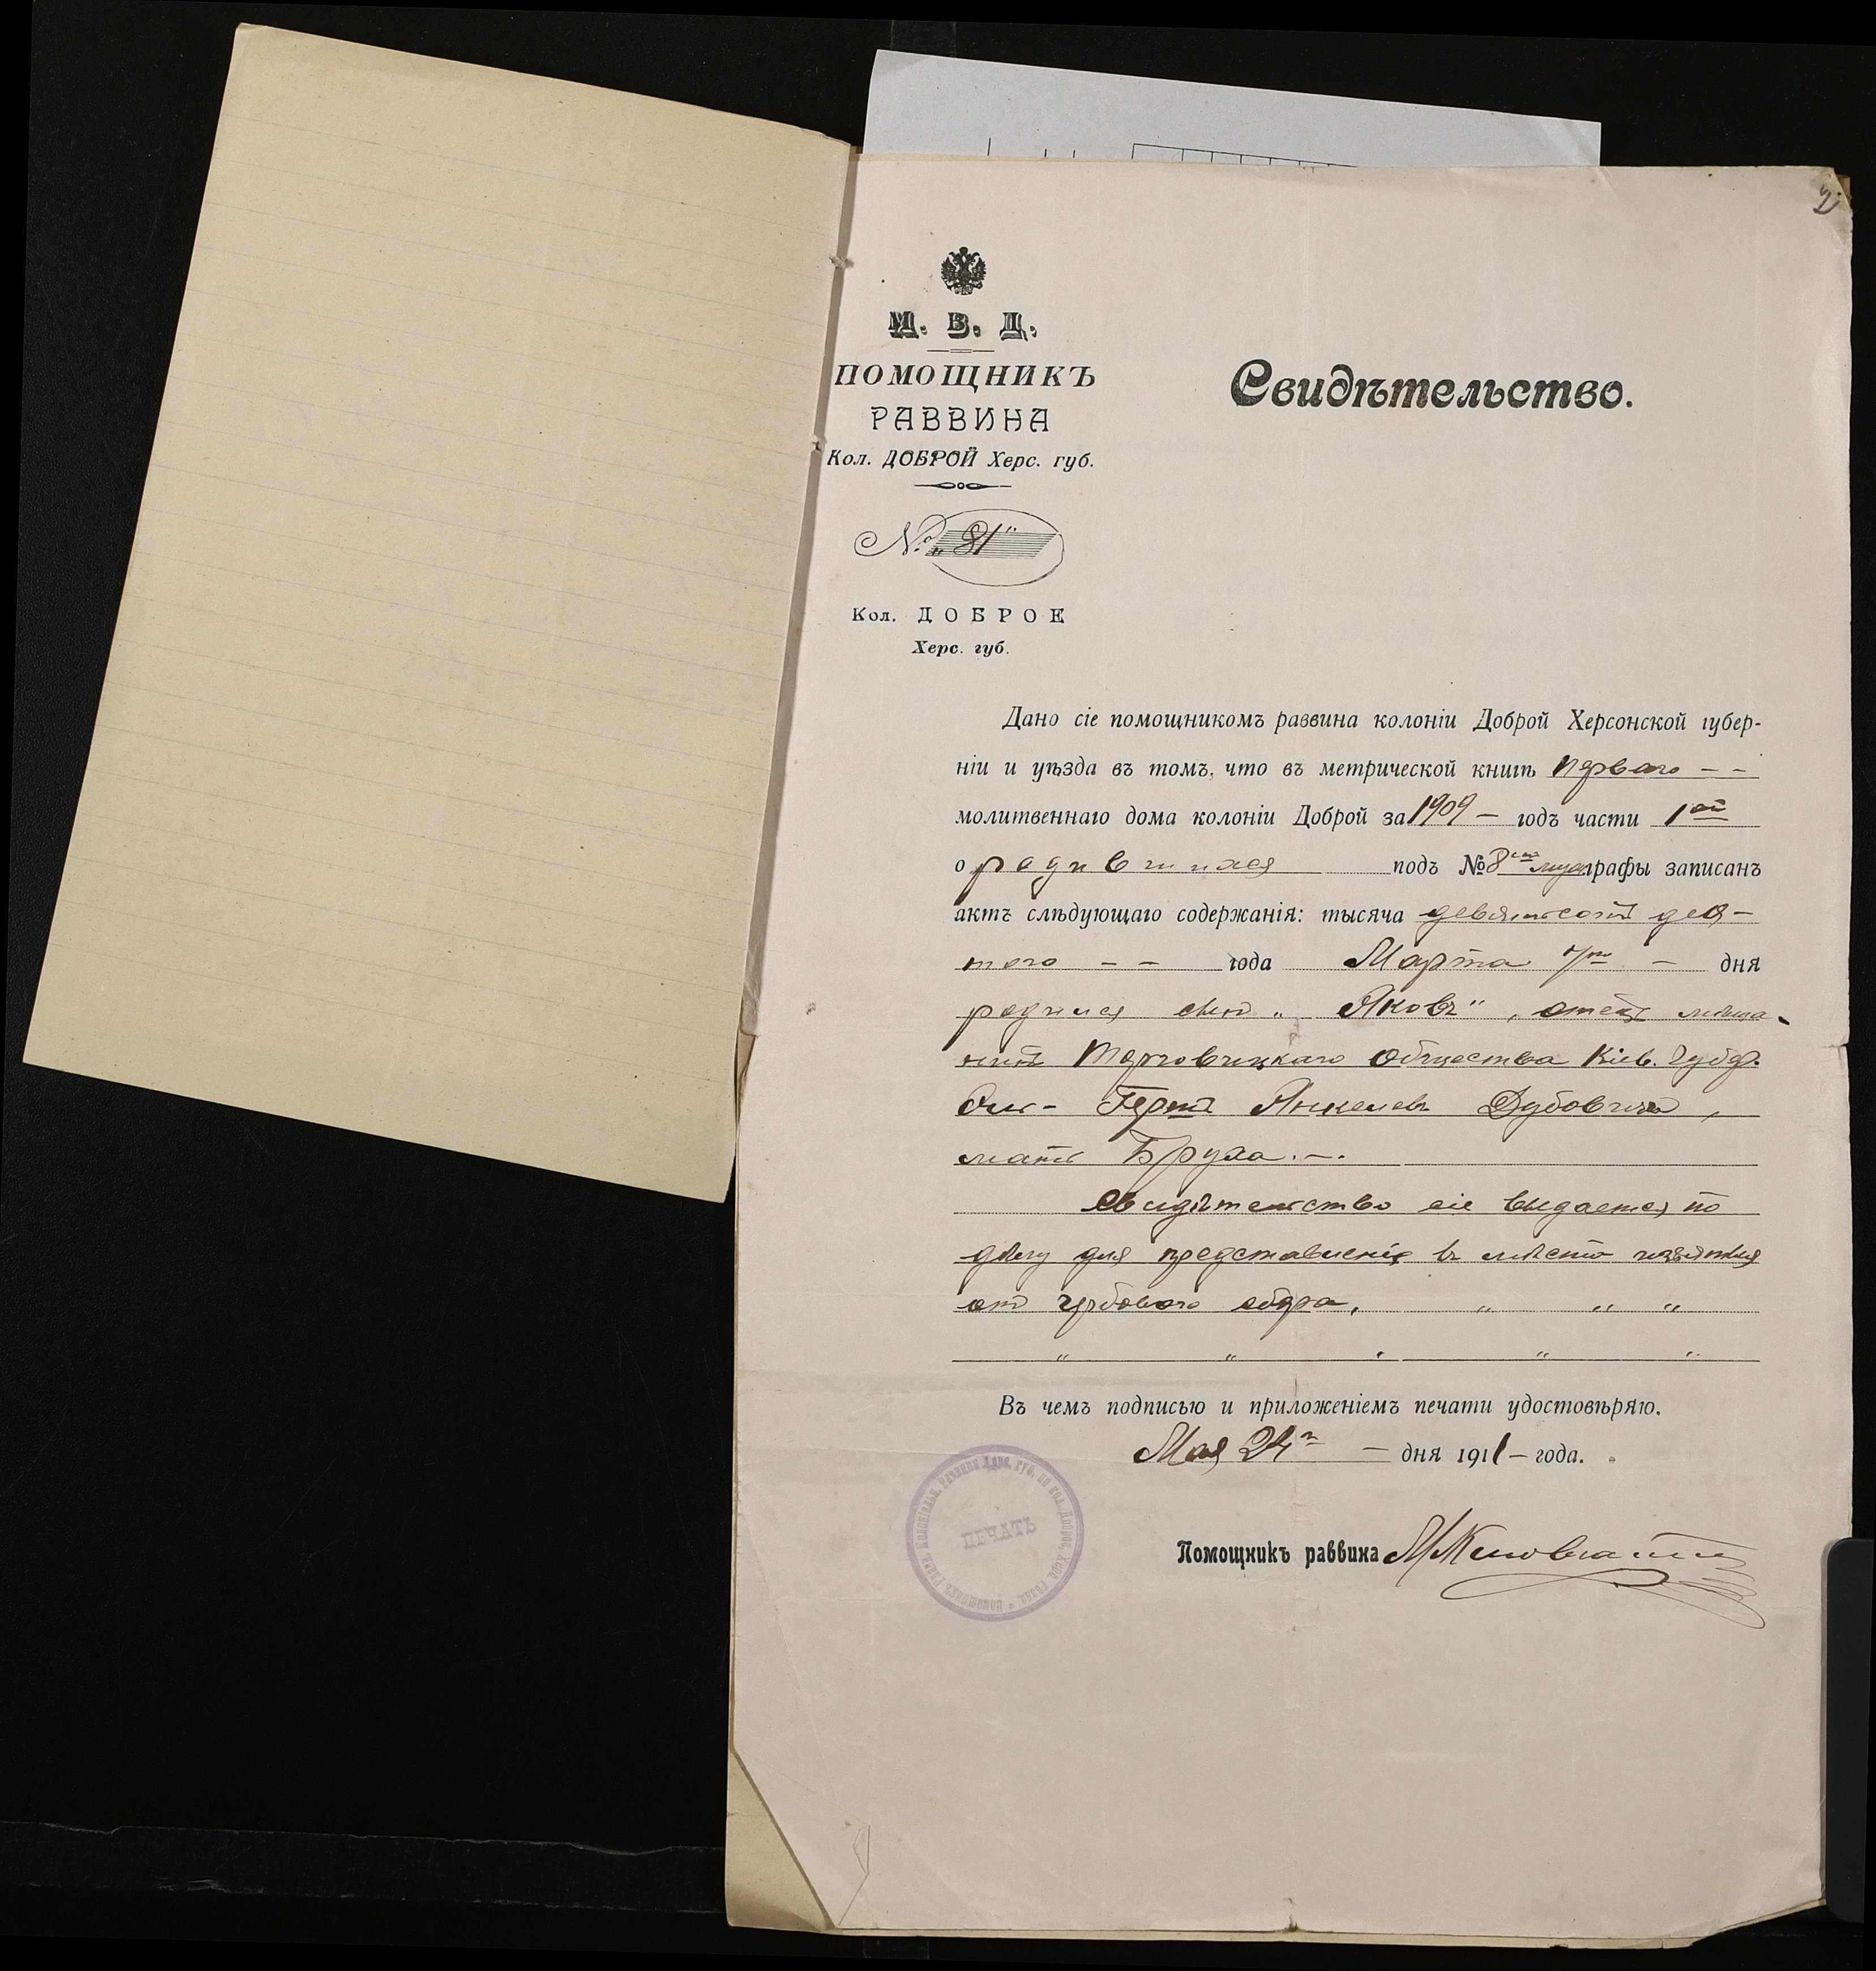 М. В. Д.
ПОМОЩНИКЪ
РАВВИНА
Кол. ДОБРОЙ Херс. губ.
№ „81"
Кол. ДОБРОЕ
Херс. губ.
Свидѣтельство.
Дано сіе помощникомъ раввина колоніи Доброй Херсонской губер-
ніи и уѣзда въ томъ, что въ метрической книгѣ перваго - -
молитвеннаго дома колоніи Доброй за 1909 - годъ части 1ой
о родившихся подъ № 8 муж графы записанъ
актъ слѣдующаго содержанія: тысяча девятьсотъ девя-
того - - года Марта - дня
родился сынъ „Яковъ", отецъ мѣща-
нинъ Торговицкаго Общества Кіев. Губер.
Янкелевъ Дубовичъ,
мать Бруха.-.
Свидѣтельство сіе выдается по
дѣлу для представленія въ мѣсто изъятія
отъ сбора, " " "
" " " " "
Въ чемъ подписью и приложеніемъ печати удостовѣряю.
Мая 24 - дня 1911 - года.
ПЕЧАТЬ
Помощникъ раввина